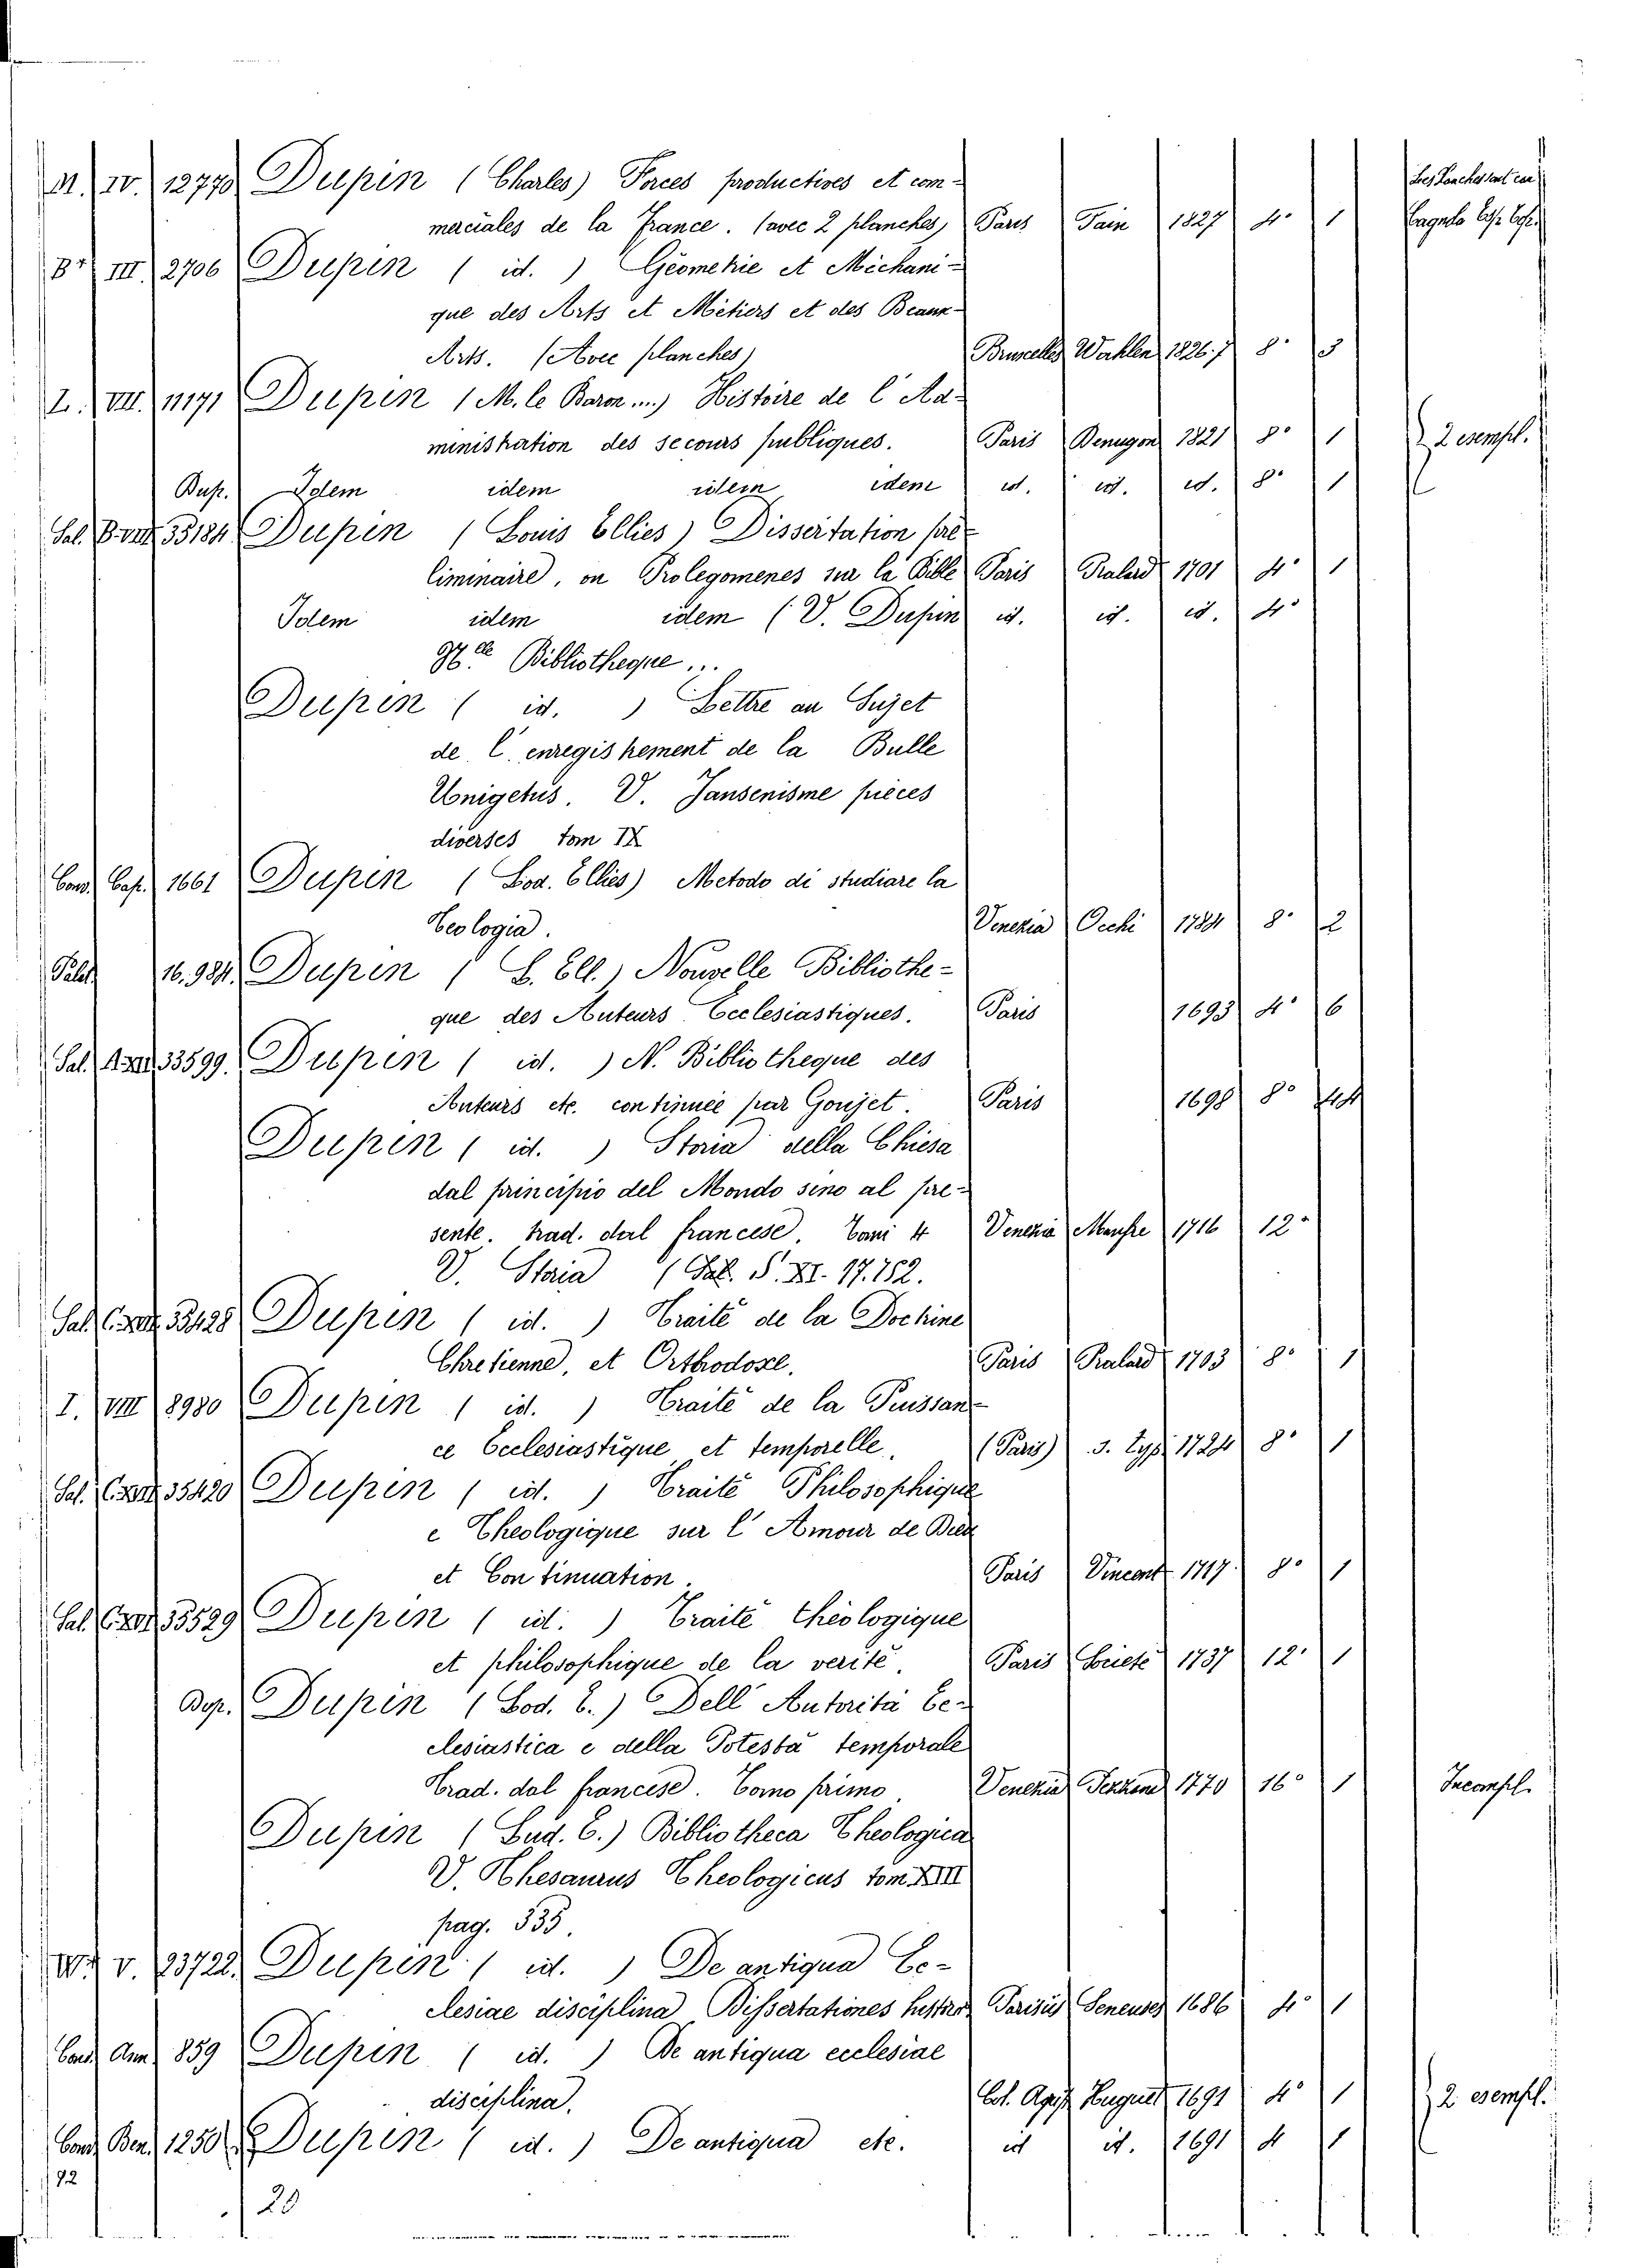 M. IV. 12770 Dupin (Charles) Forces productives et com-
merciales de la France. (avec 2 planches) Paris Fain 1827 4° 1
III. 2706 Dupin ( id. ) Géometrie et Méchani-
que des Arts et Métiers et des Beaux-
Arts. (Avec planches) Bruxelles Wahlen 1826.7 8° 3
L. VII. 11171 Dupin (M. le Baron ...) Histoire de l'Ad-
ministration des secours publiques. Paris 1821 8° 1 2 esempl.
Dup. Idem idem idem idem id. id. id. 8° 1
Sal. B. VIII. 33184 Dupin (Louis Ellies) Dissertation pre-
liminaire, ou Prolegomenes sur la Bible Paris Pralard 1701 4° 1
Idem idem idem (V. Dupin id. id. id. 4°
Nlle Bibliotheque...
Dupin ( id. ) Lettre au Sujet
de l'enregistrement de la Bulle
Unigetus. V. Jansenisme pièces
diverses tom IX
Conv. Cap. 1661 Dupin (Lod. Ellies) Metodo di studiare la
Teologia. Venezia Occhi 1784 8° 2
Palat 16.984. Dupin (L. Ell.) Nouvelle Bibliothe-
que des Auteurs Ecclesiastiques. Paris 1693 4° 6
Sal. 33599. Dupin ( id. ) N. Bibliotheque des
Auteurs etc. continuée par Goujet. Paris 1698 8°
Dupin ( id. ) Storia della Chiesa
dal principio del Mondo sino al pre-
sente. trad. dal francese. Tomi 4 Venezia 1716 12°
V. Storia (Sal. S. XI. 17.752.
Sal. 33428 Dupin ( id. ) Traité de la Doctrine
Chretienne, et Orthodoxe. Paris Pralard 1703 8° 1
I. VIII 8980 Dupin ( id. ) Traité de la Puissan-
ce Ecclesiastique et temporelle. (Paris) s. typ. 1724 8° 1
Sal. 35420 Dupin ( id. ) Traité Philosophique
e Theologique sur l'Amour de Dieu
et Continuation. Paris Vincent 1717. 8° 1
Sal. 33529 Dupin ( id. ) Traité théologique
et philosophique de la verité. Paris Societé 1737 12° 1
Dop. Dupin (Lod. E.) Dell'Autorità Ec-
clesiastica e della Potestà temporale
Trad. dal francese. Tomo primo. Venezia 1770 16° 1 Incompl.
Dupin (Lud. E.) Bibliotheca Theologica
V. Thesaurus Theologicus tom XIII
pag. 335.
V. 23722. Dupin ( id. ) De antiqua Ec-
clesiae disciplina Dissertationes histor. Parisiis Seneuse 1686 4° 1
Conv. Ann. 859 Dupin ( id. ) De antiqua ecclesiae
disciplina. Col. Agrip. Huguet. 1691 4° 1 2 esempl.
Conv. Ben. 1250 Dupin ( id. ) De antiqua etc. id id. 1691 4 1
20